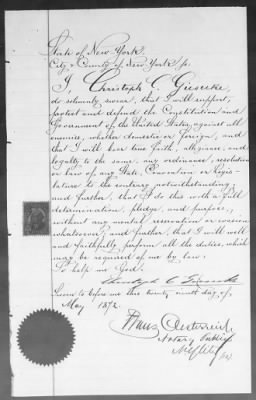 State of New York.
City & County of New York ss.
I, Christoph C. Giesecke,
do solemnly swear, that I will support,
protect and defend the Constitution and
Government of the United States, against all
enemies, whether domestic or foreign, and
that I will bear true faith, allegiance, and
loyalty to the same, any ordinance, resolution
or law of any State, Convention or Legis-
lature to the contrary notwithstanding,
and further, that I do this with a full
determination, pledge, and purpose,
without any mental reservation or evasion
whatsoever; and further, that I will well
and faithfully perform all the duties, which
may be required of me by law:
So help me God.
Christoph C Giesecke
Sworn to before me this twenty ninth day of,
May 1872.
Franz Oesterreich
Notary Public
N.Y. City